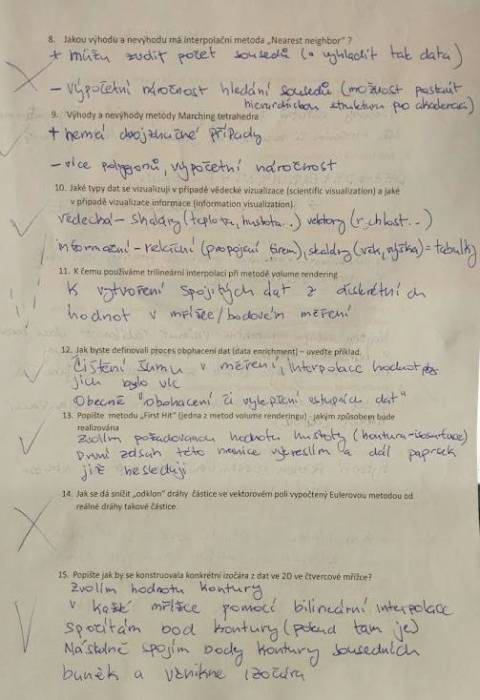 8. Jakou výhodu a nevýhodu má interpolační metoda „Nearest neighbor" ?
+ můžu zvolit počet sousedů (a vyhladit tak data)
- výpočetní náročnost hledání sousedů (možnost postavit
hierarchickou strukturu pro akceleraci)
9. Výhody a nevýhody metody Marching tetrahedra
+ nemá dvojznačné případy
- více polygonů, výpočetní náročnost
10. Jaké typy dat se vizualizují v případě vědecké vizualizace (scientific visualization) a jaké
v případě vizualizace informace (information visualization).
vědecká - skaláry (teplota, hustota..) vektory (rychlost..)
informační - relační (propojení firem), skaláry (věk, výška) = tabulky
11. K čemu používáme trilineární interpolaci při metodě volume rendering
K vytvoření spojitých dat z diskrétních
hodnot v mřížce/bodovém měření
12. Jak byste definovali proces obohacení dat (data enrichment) – uveďte příklad.
Čištění šumu v měření, interpolace hodnot
jich bylo víc
Obecně "obohacení či vylepšení vstupních dat"
13. Popište metodu „First Hit" (jedna z metod volume renderingu) - jakým způsobem bude
realizována
Zvolím požadovanou hodnotu hustoty (kontura-isosurface)
První zásah této hranice vykreslím a dál paprsek
již nesleduji
14. Jak se dá snížit „odklon" dráhy částice ve vektorovém poli vypočtený Eulerovou metodou od
reálné dráhy takové částice.
15. Popište jak by se konstruovala konkrétní izočára z dat ve 2D ve čtvercové mřížce?
Zvolím hodnotu kontury
V každé mřížce pomocí bilineární interpolace
spočítám bod kontury (pokud tam je)
Následně spojím body kontury sousedních
buněk a vznikne izočára